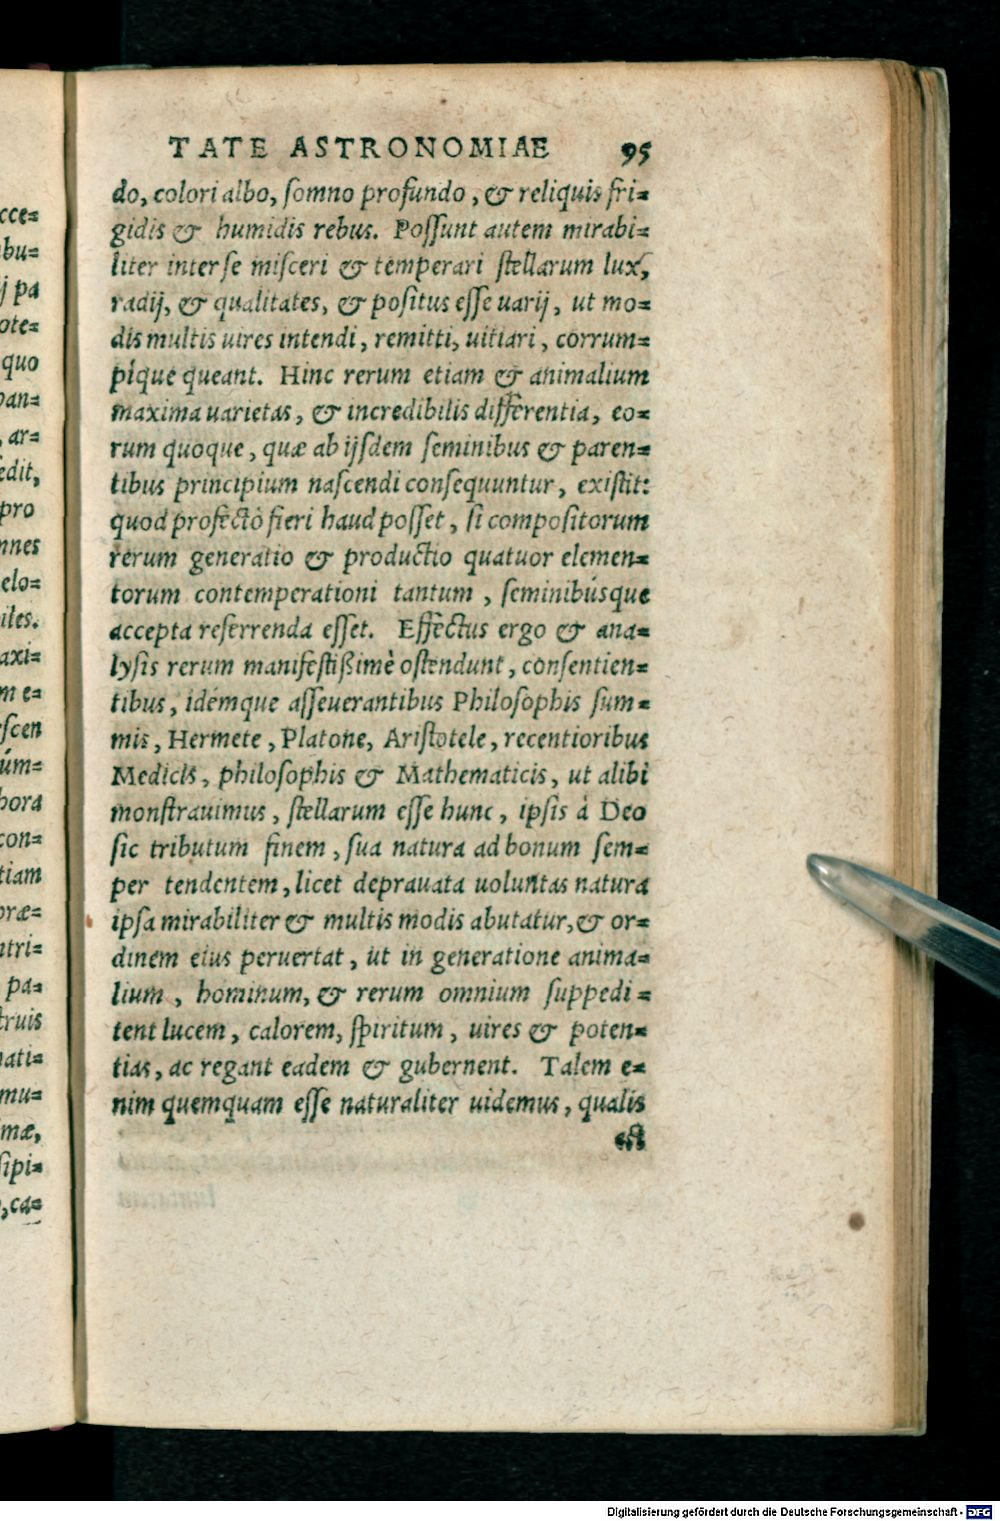 TATE ASTRONOMIAE 95
do, colori albo, somno profundo, & reliquis fri=
gidis & humidis rebus. Possunt autem mirabi=
liter inter se misceri & temperari stellarum lux,
radij, & qualitates, & positus esse uarij, ut mo=
dis multis uires intendi, remitti, uitiari, corrum=
píque queant. Hinc rerum etiam & animalium
maxima uarietas, & incredibilis differentia, eo=
rum quoque, quæ ab ijsdem seminibus & paren=
tibus principium nascendi consequuntur, existit:
quod profectò fieri haud posset, si compositorum
rerum generatio & productio quatuor elemen=
torum contemperationi tantum, seminibúsque
accepta referrenda esset. Effectus ergo & ana=
lysis rerum manifestißimè ostendunt, consentien=
tibus, idémque asseuerantibus Philosophis sum=
mis, Hermete, Platone, Aristotele, recentioribus
Medicis, philosophis & Mathematicis, ut alibi
monstrauimus, stellarum esse hunc, ipsis à Deo
sic tributum finem, sua natura ad bonum sem=
per tendentem, licet deprauata uoluntas natura
ipsa mirabiliter & multis modis abutatur, & or=
dinem eius peruertat, ut in generatione anima=
lium, hominum, & rerum omnium suppedi=
tent lucem, calorem, spiritum, uires & poten=
tias, ac regant eadem & gubernent. Talem e=
nim quemquam esse naturaliter uidemus, qualis
est
cce=
bu=
j pa
ote=
quo
pan=
, ar=
edit,
pro
nnes
elo=
iles.
axi=
m e=
scen
úm=
hora
con=
tiam
præ=
ntri=
pa=
truis
nati=
mu=
mæ,
sipi=
, ca=
Digitalisierung gefördert durch die Deutsche Forschungsgemeinschaft - DFG